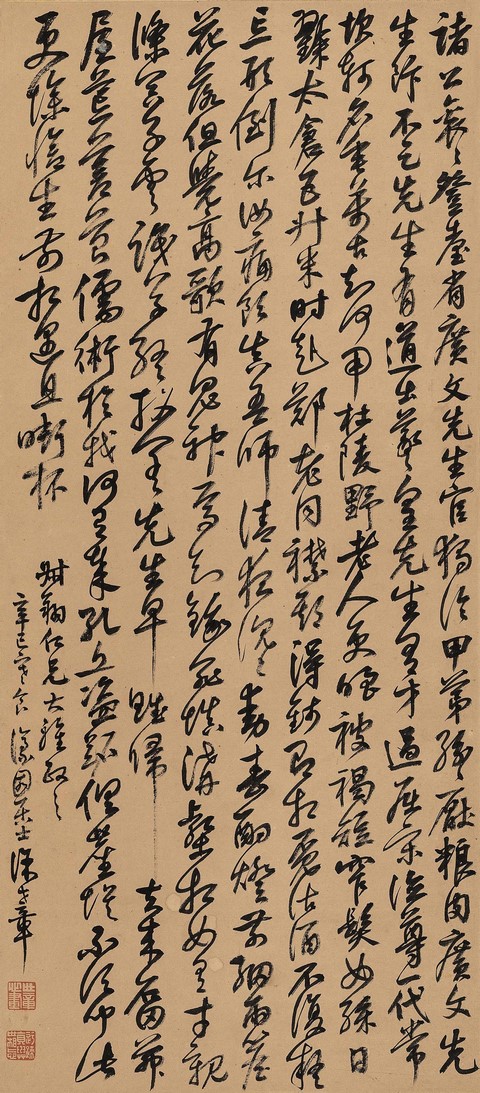 諸公袞〻登臺省廣文先生官獨冷甲第紛〻厭粱肉廣文先
生飯不足先生有道出羲皇先生有才過屈宋德尊一代常
坎軻名垂萬古知何用杜陵野老人更嗤被褐短窄鬢如絲日
糴太倉五升米時赴鄭老同襟期得錢即相覓沽酒不復疑
忘形到爾汝痛飲真吾師清夜沉〻動春酌燈前細雨簷
花落但覺高歌有鬼神焉知餓死填溝壑相如逸才親
滌器子雲識字終投閣先生早賦歸去來石田茅
屋荒蒼苔儒術於我何有哉孔丘盜跖俱塵埃不須聞此
意慘愴生前相遇且銜杯
翰仁兄大雅政之
辛巳寒食濠園居士徐世章